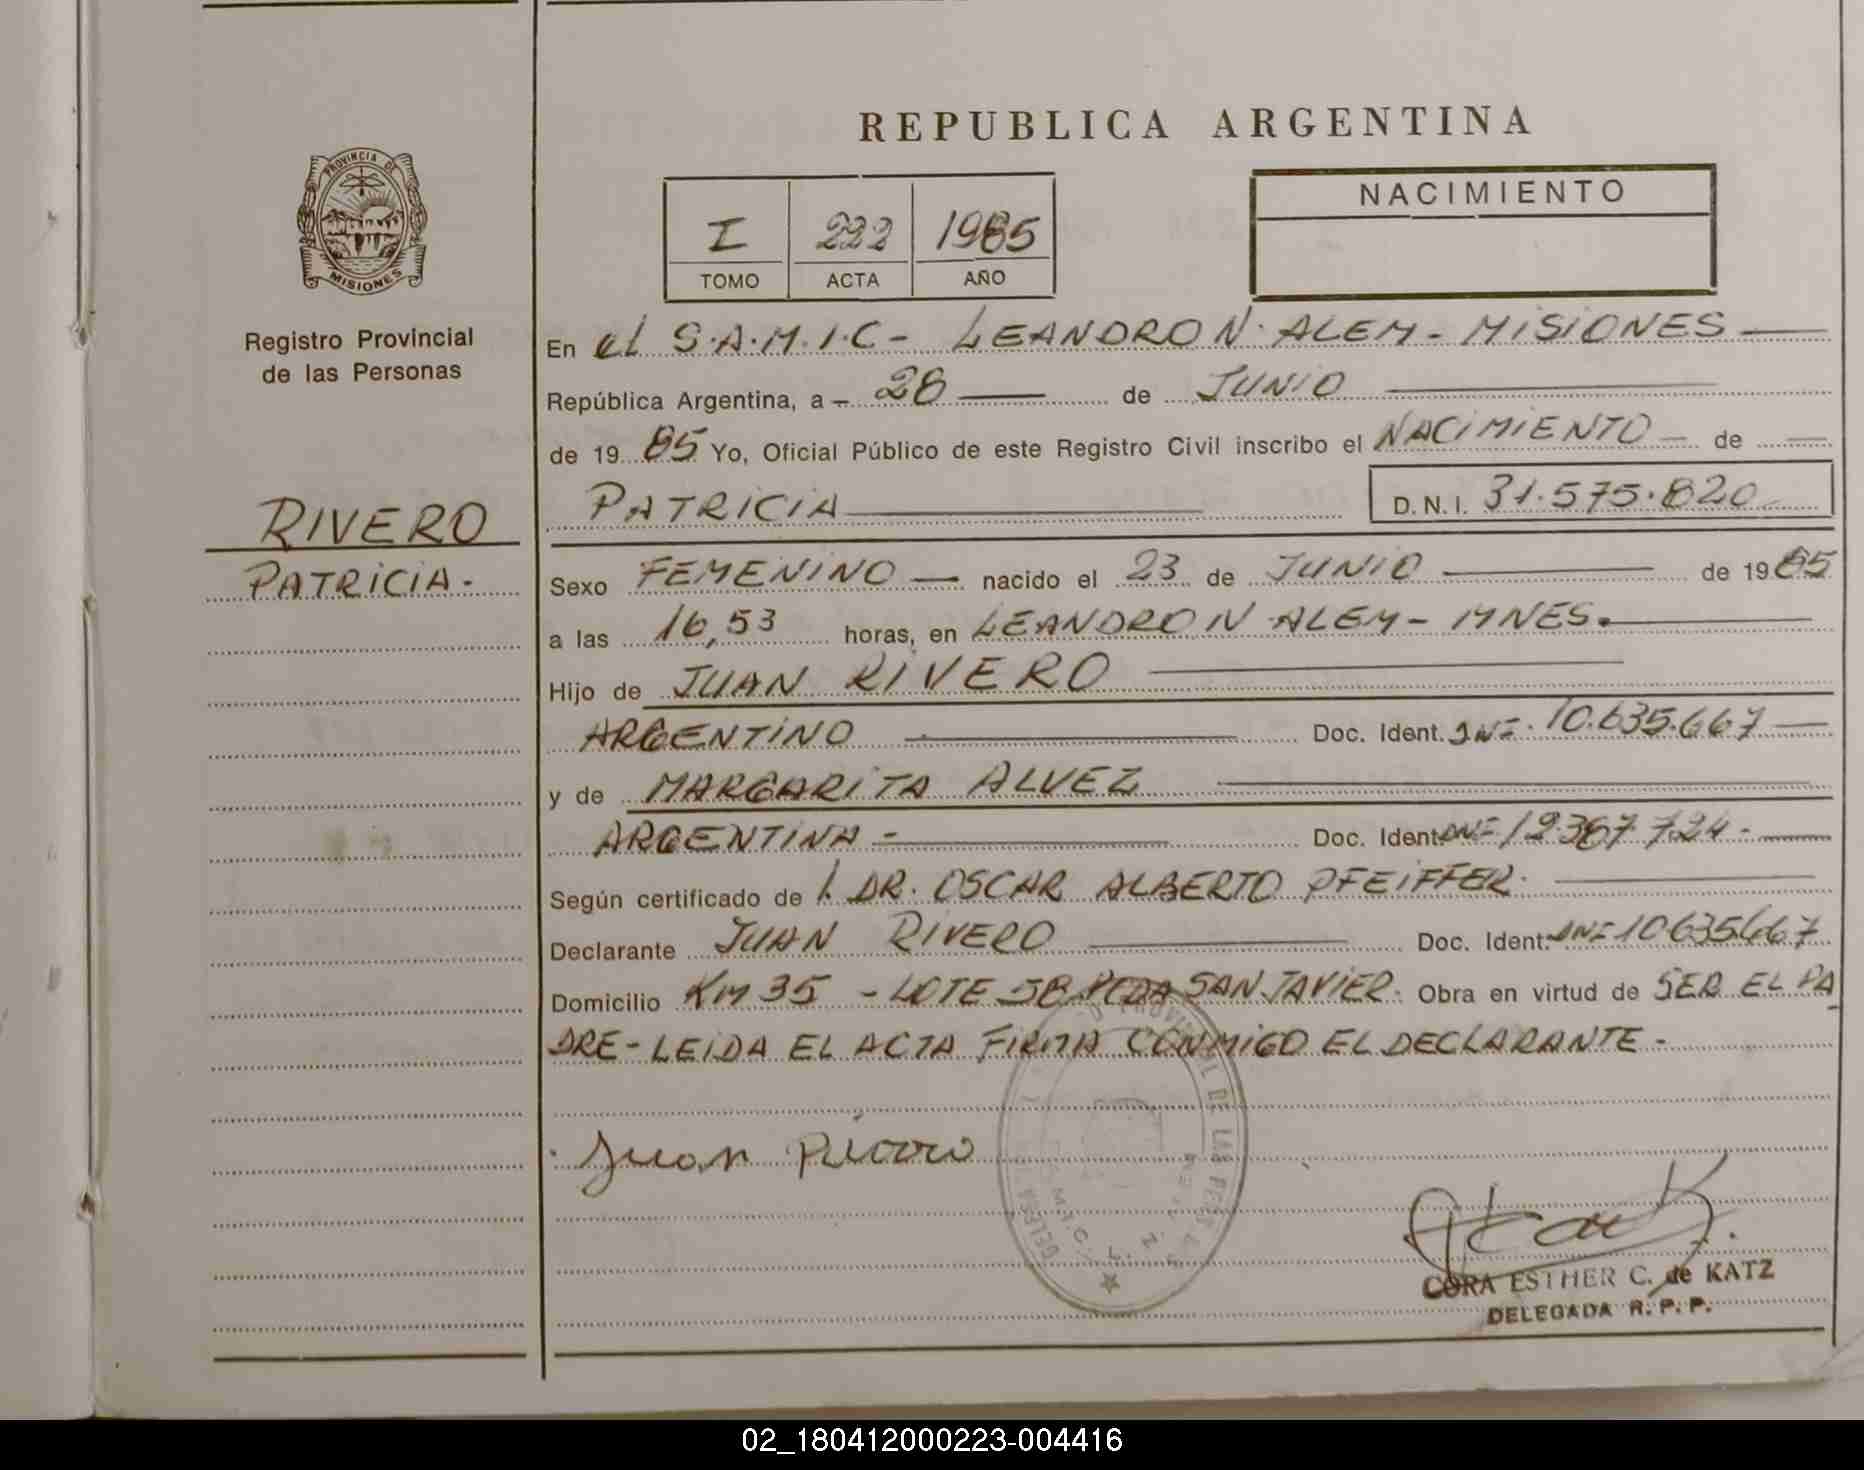 REPUBLICA ARGENTINA
PROVINCIA DE
MISIONES
Registro Provincial
de las Personas
I 222 1985
TOMO ACTA AÑO
NACIMIENTO
En el S.A.M.I.C- LEANDRO N. ALEM - MISIONES
República Argentina, a - 28 de JUNIO
de 19 85 Yo, Oficial Público de este Registro Civil inscribo el NACIMIENTO - de
PATRICIA D.N.I. 31.575.820
RIVERO
PATRICIA.
Sexo FEMENINO nacido el 23 de JUNIO de 19 85
a las 16,53 horas, en LEANDRO N ALEM - MNES.
Hijo de JUAN RIVERO
ARGENTINO Doc. Ident. DNI 10.635.667
y de MARGARITA ALVEZ
ARGENTINA - Doc. Ident. DNI 12.367.724.
Según certificado de DR. OSCAR ALBERTO PFEIFFER.
Declarante JUAN RIVERO Doc. Ident. DNI 10635667
Domicilio KM 35 - LOTE SAN JAVIER. Obra en virtud de SER EL PA
DRE - LEIDA EL ACTA FIRMA CONMIGO EL DECLARANTE -
Juan Rivero
CORA ESTHER C. de KATZ
DELEGADA R. P. P.
02_180412000223-004416